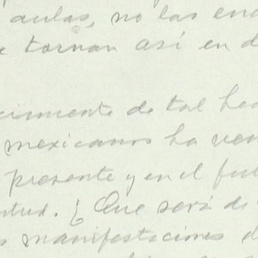 aulas, no las en
tornan así en d
cimiento de tal he
mexicanos ha ven
presente y en el fu
ntud. ¿ Que será de
s manifestaciones d